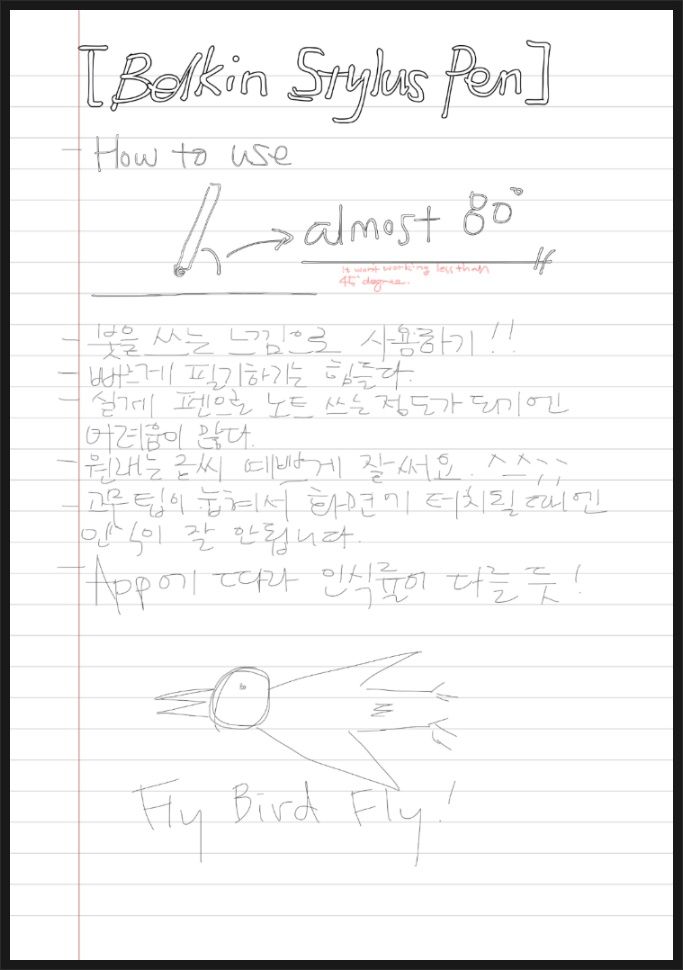 [Belkin Stylus Pen]
- How to use
almost 80°
It wont working less than
45° degree.
- 붓을 쓰는 느낌으로 사용하기!!
- 빠르게 필기하기는 힘들다.
- 실제 펜으로 노트 쓰는 정도가 되기엔
어려움이 많다.
- 원래는 글씨 예쁘게 잘써요. ^^;;
- 고무팁이 눕혀서 화면기 터치될 때엔
인식이 잘 안됩니다.
- App에 따라 인식률이 다를 듯!
Fly Bird Fly!